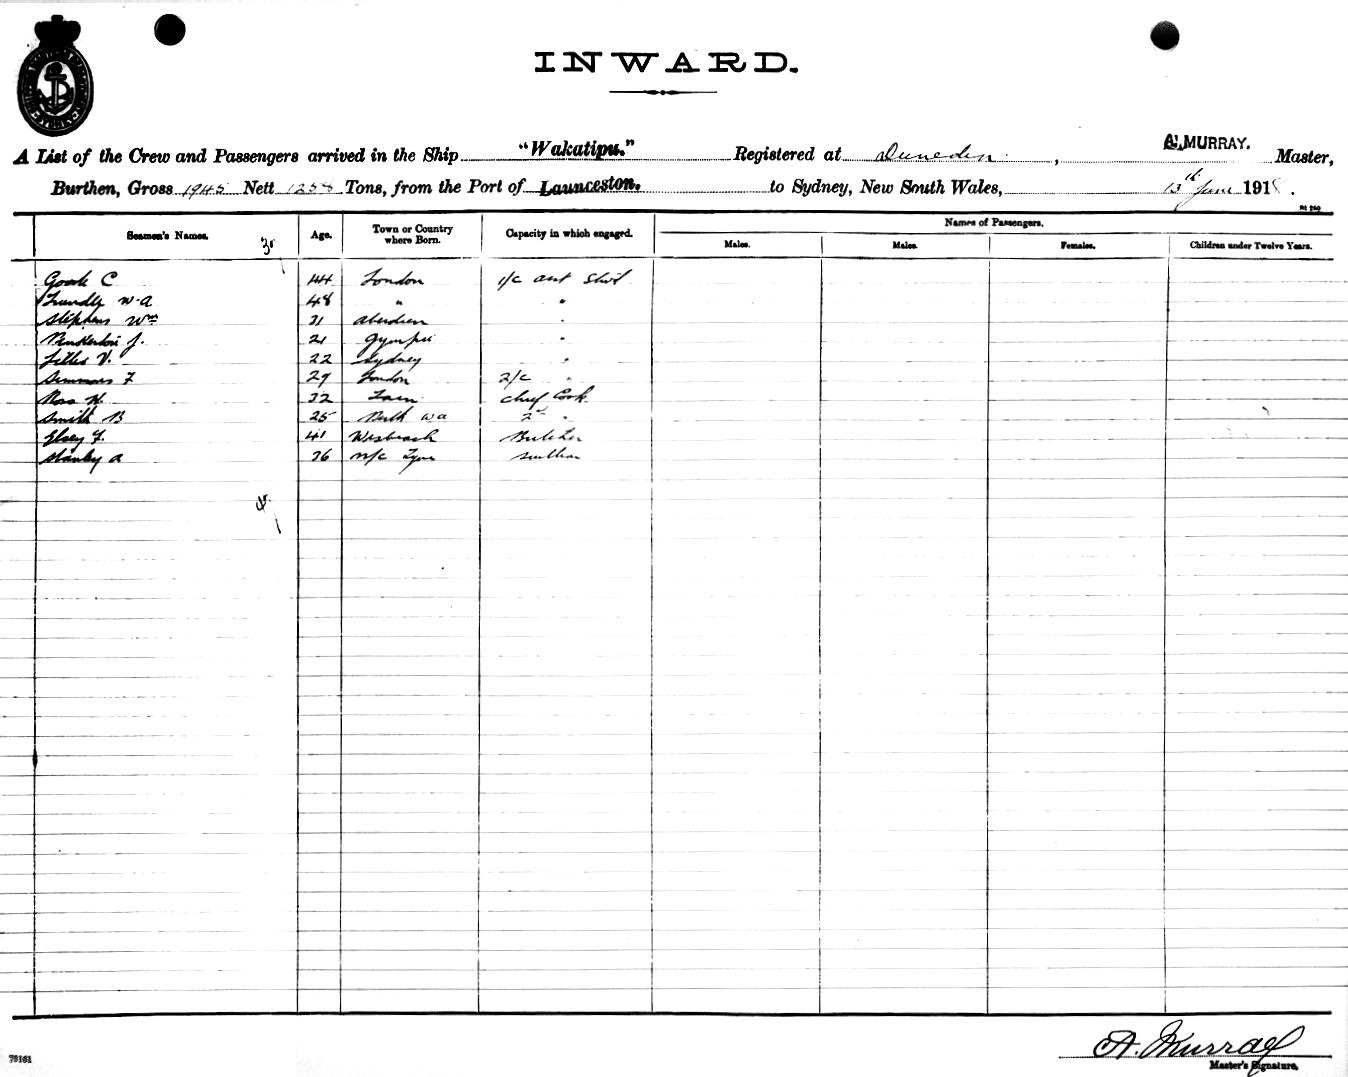 INWARD.
A List of the Crew and Passengers arrived in the Ship "Wakatipu." Registered at Dunedin, A. MURRAY. Master,
Burthen, Gross 1945 Nett 1258 Tons, from the Port of Launceston. to Sydney, New South Wales, 13th June 1918.
Names of Passengers.
Seamen's Names. Age. Town or Country where Born. Capacity in which engaged. Males. Males. Females. Children under Twelve Years.
30
C 44 London 1/c asst Stwd
W. A 48 " "
Stephens Wm 31 Aberdeen "
Pinkerton J. 21 Gympie "
V. 22 Sydney "
Simmons F 29 London 2/c "
Ross H. 32 Chief Cook
Smith B 25 Perth WA 2nd "
Elsey F. 41 Wisbeach Butcher
Stanley A 36 N/c Tyne Scullion
A. Murray
Master's Signature.
79161